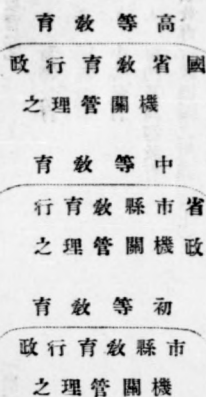 高等敎育
國省敎育行政
機關管理之
中等敎育
省市縣敎育行
政機關管理之
初等敎育
市縣敎育行政
機關管理之